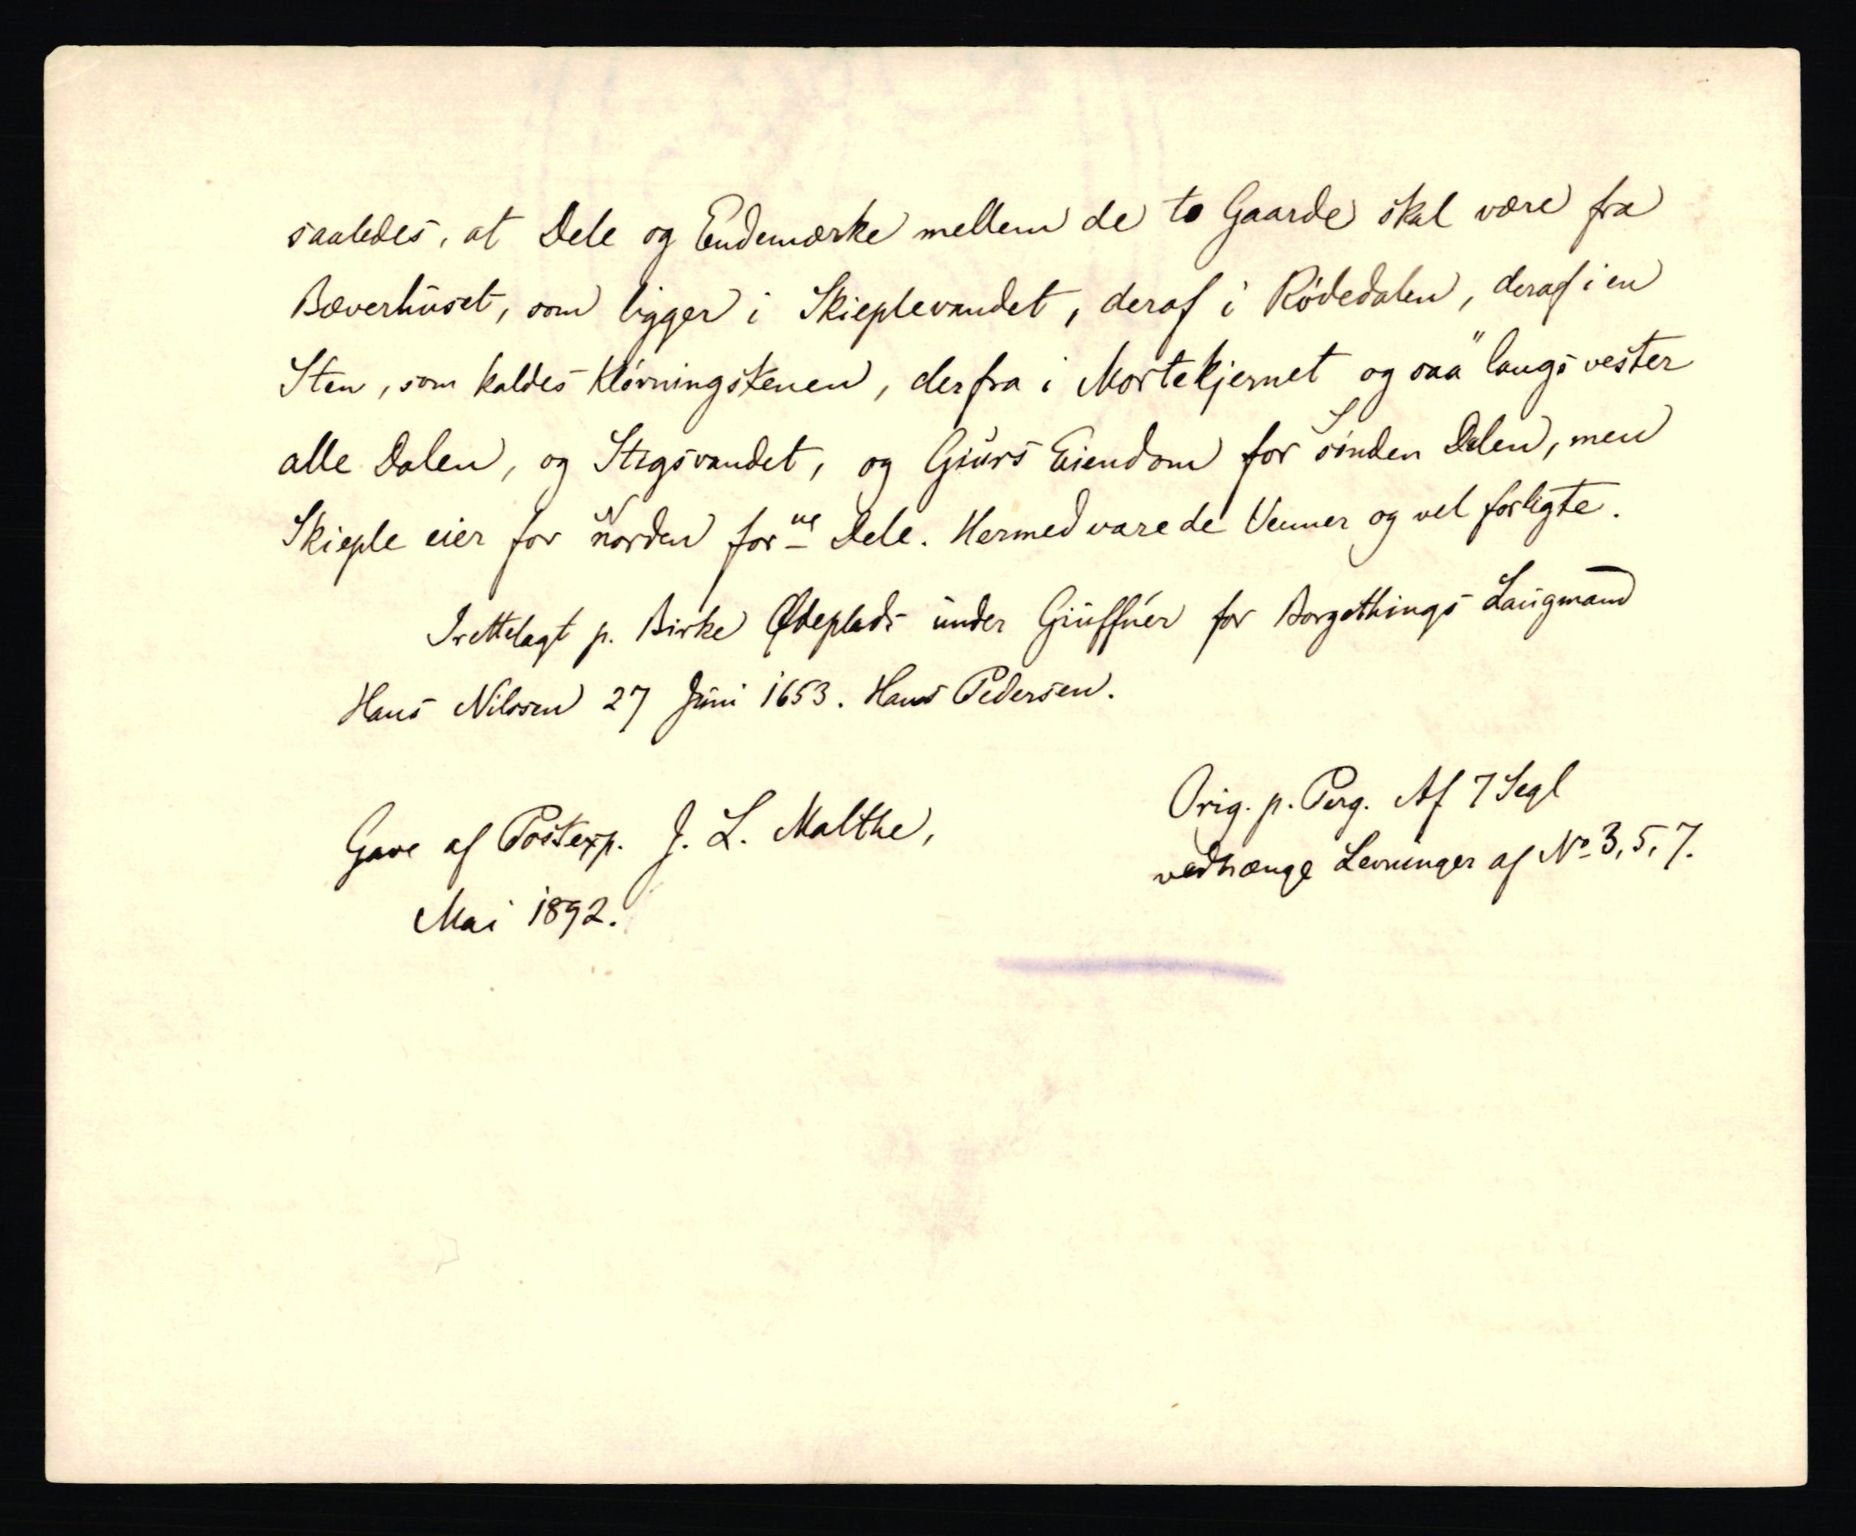 saaledes, at Dele og Endemærke mellem de to Gaarde skal være fra
Bæverhuset, som ligger i Skieplevandet, deraf i Rødedalen, deraf i en
Sten, som kaldes Kløvningstenen, derfra i Mortekjernet og saa langs vester
alle Dalen, og Stegsvandet, og Giurs Eiendom for Sönden Delen, men
Skieple eier for Norden forne Dele. Hermed vare de Venner og vel forligte.
Irettelagt p. Birke Ødeplads under Giuffuer for Borgethings Laugmand
Hans Nilssen 27 Juni 1653. Hans Pedersen.
Orig. p. Perg. Af 7 Segl
Gave af Postexp. J. L. Malthe,
vedhænge Levninger af No 3, 5, 7.
Mai 1892.